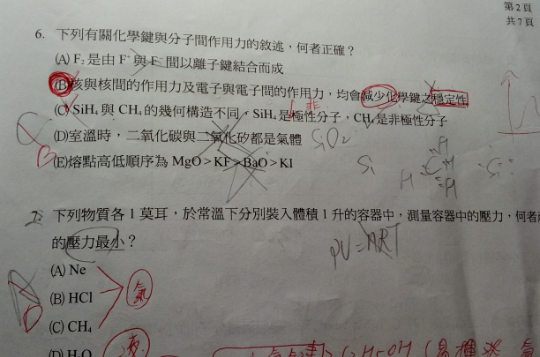 第2頁
共7頁
6. 下列有關化學鍵與分子間作用力的敘述，何者正確？
(A) F₂是由 F⁺ 與 F⁻ 間以離子鍵結合而成
(B) 核與核間的作用力及電子與電子間的作用力，均會減少化學鍵之穩定性
(C) SiH₄ 與 CH₄ 的幾何構造不同，SiH₄ 是極性分子，CH₄ 是非極性分子
非
(D) 室溫時，二氧化碳與二氧化矽都是氣體
SiO₂
(E) 熔點高低順序為 MgO > KF > BaO > KI
7. 下列物質各 1 莫耳，於常溫下分別裝入體積 1 升的容器中，測量容器中的壓力，何者
的壓力最小？
PV=nRT
(A) Ne
(B) HCl
氣
(C) CH₄
(D) H₂O
液